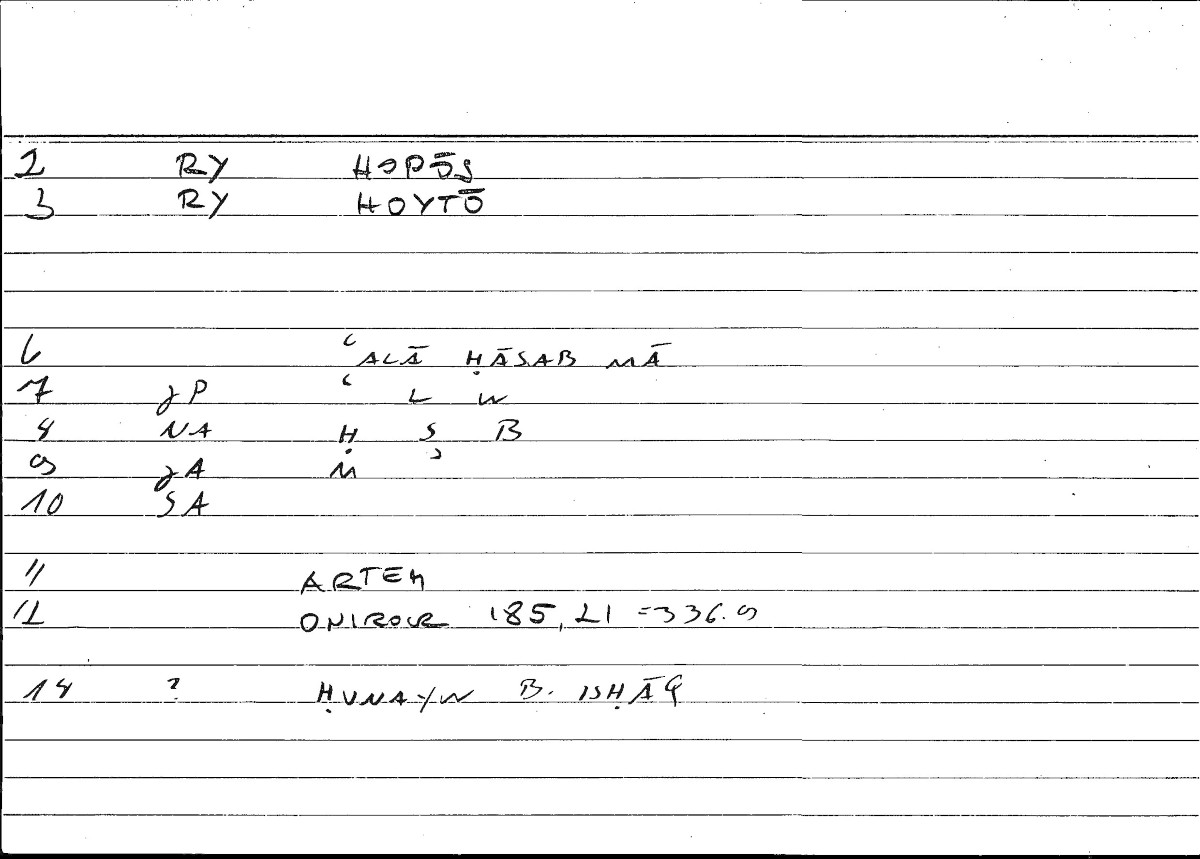 2 RY HOPŌS
3 RY HOYTŌ
6 ʿALĀ ḤĀSAB MĀ
7 JP ʿ L W
8 NA Ḥ S B
9 JA M ʾ
10 SA
11 ARTEM
12 ONIROCR 185,21 =336.9
14 ? ḤUNAYN B. ISḤĀQ